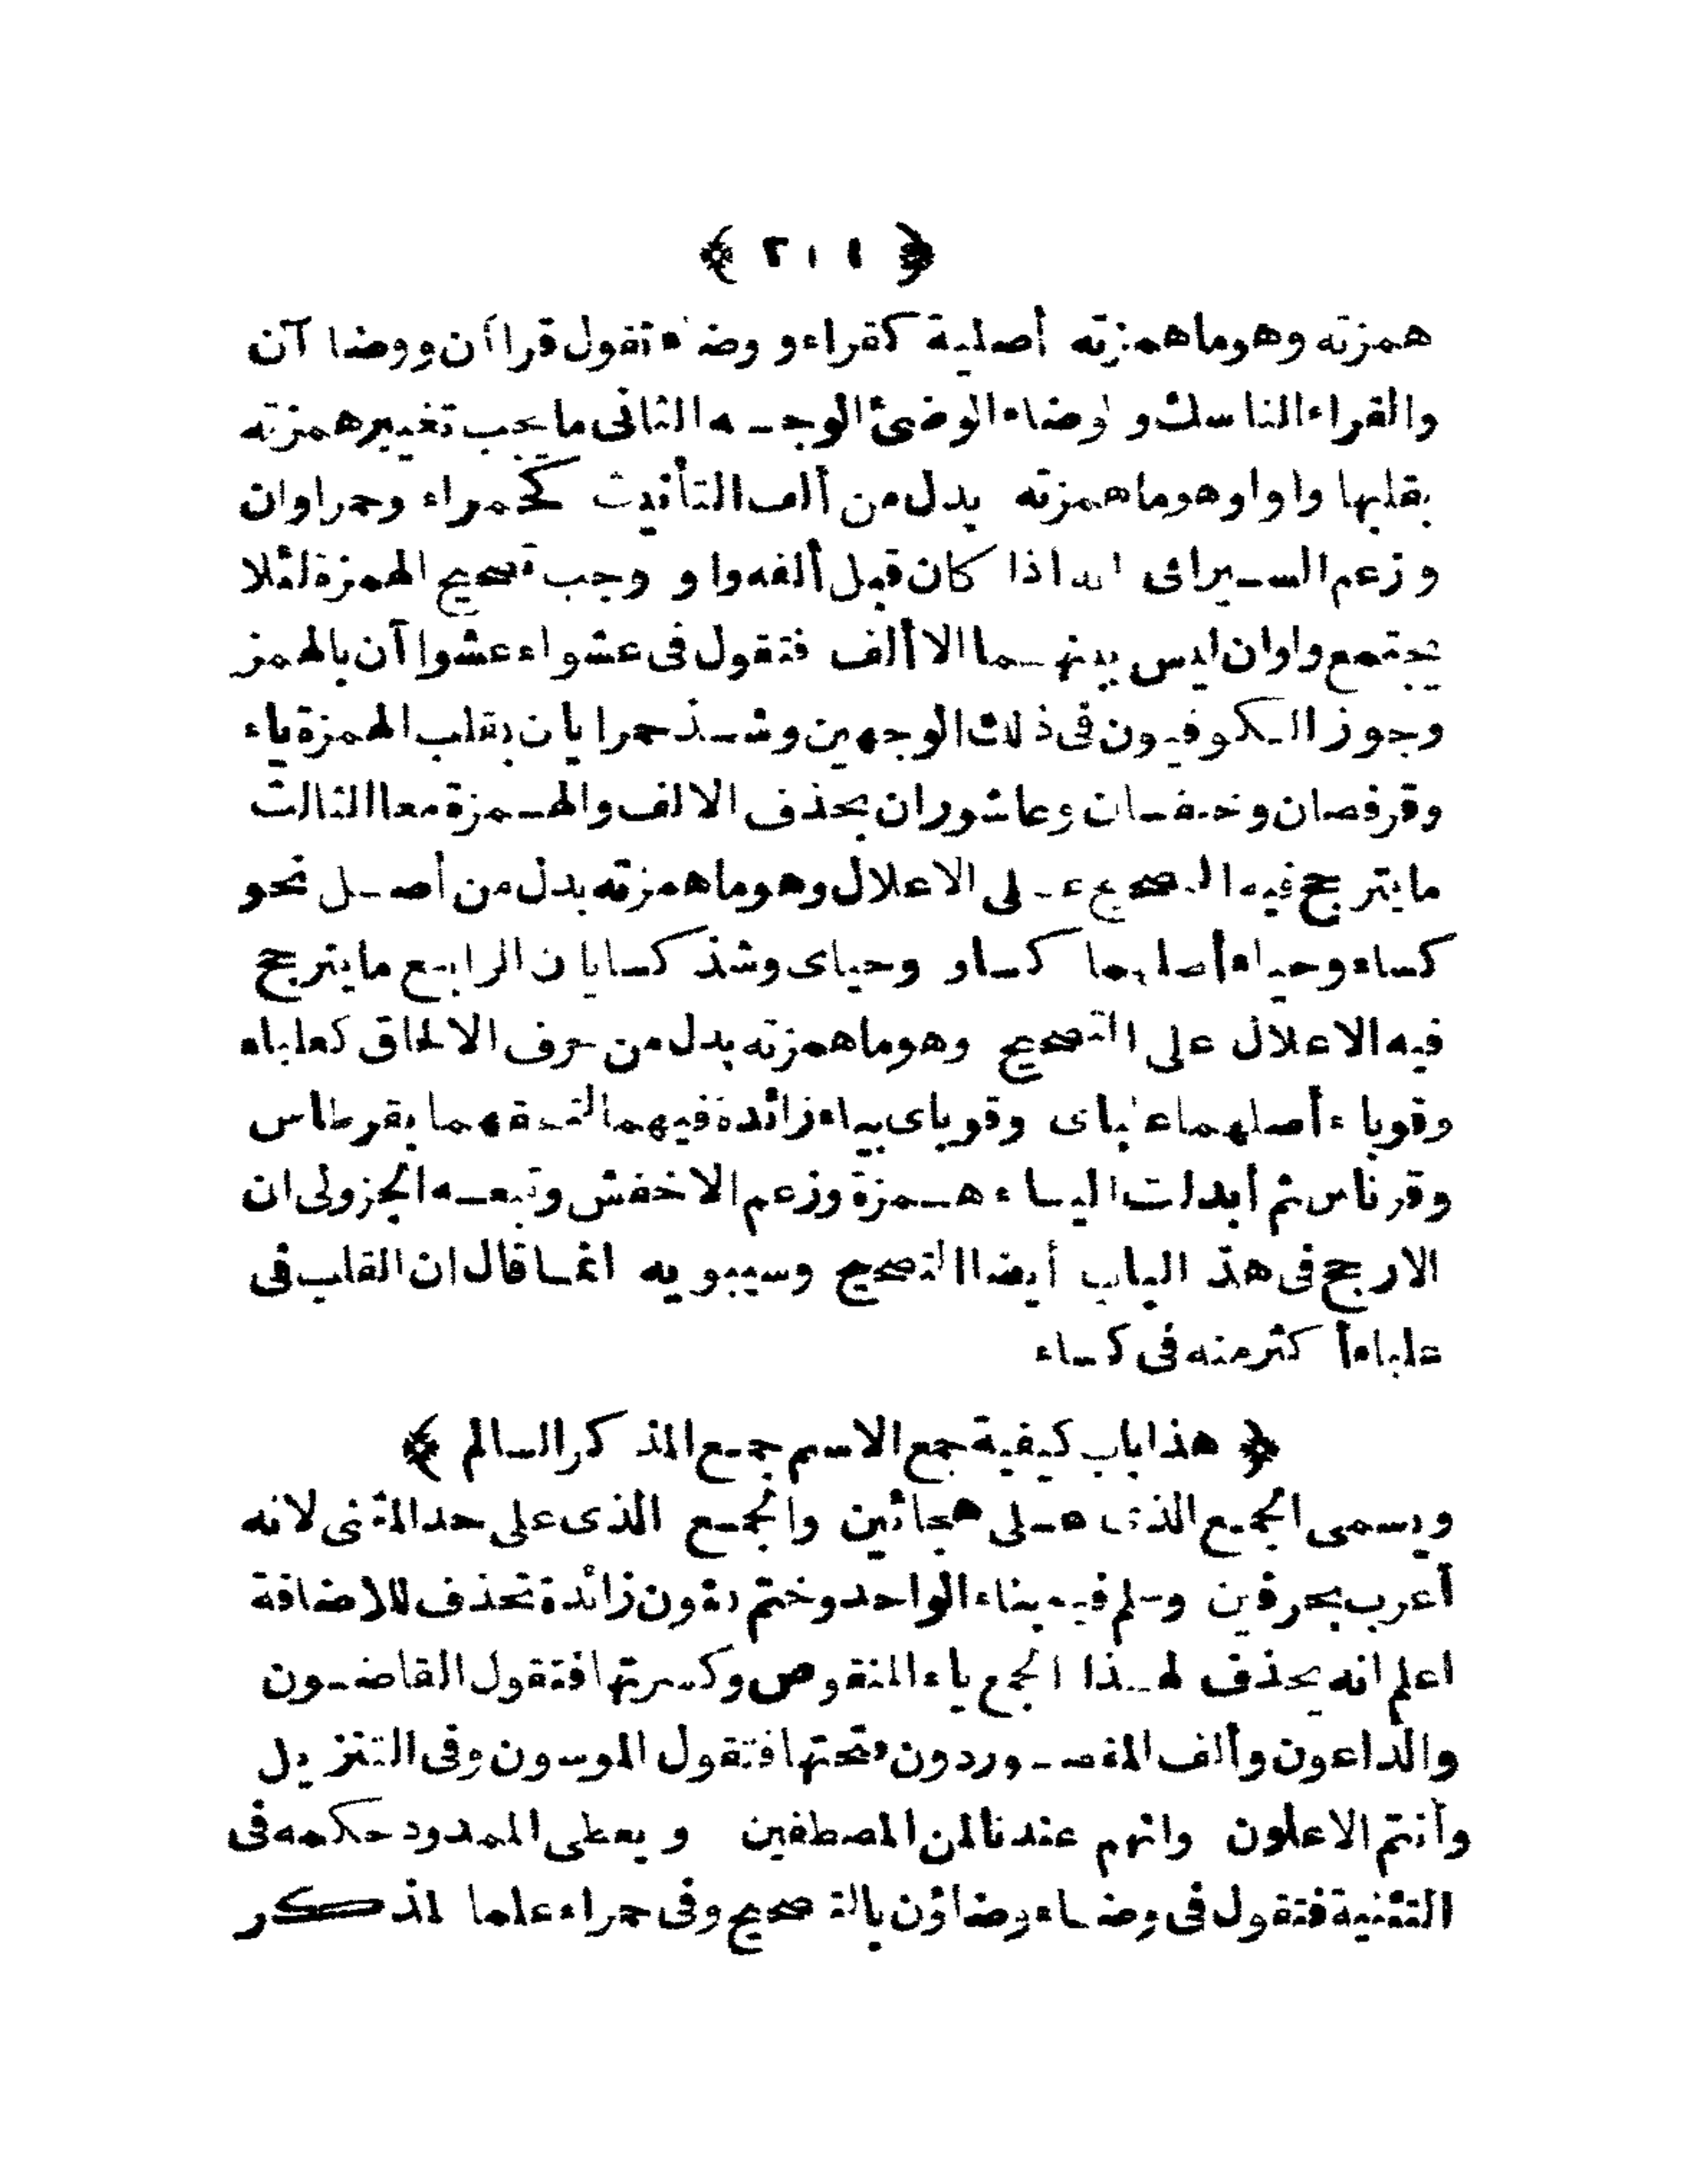 ﴿ ٢١١ ﴾
همزته وهوماهمزته أصلية كقراء و وضاء تقول قراآن ووضا آن
والقراء الناسك و الوضاء الوضئ الوجه الثانى ما يجب تغيير همزته
بقلبها واوا وهوماهمزته بدل من ألف التأنيث كحمراء وحمراوان
وزعم السيرافى انه اذا كان قبل ألفه واو وجب تصحيح الهمزة لئلا
يجتمع واوان ليس بينهما الا ألف فتقول فى عشواء عشوا آن بالهمز
وجوز الكوفيون فى ذلك الوجهين وشذ حمرايان بقلب الهمزة ياء
وقرفصان وخنفسان وعاشوران بحذف الالف والهمزة معا الثالث
ما يترجح فيه التصحيح على الاعلال وهوماهمزته بدل من أصل نحو
كساء وحياء أصلهما كساو وحياى وشذ كسايان الرابع ما يترجح
فيه الاعلال على التصحيح وهوماهمزته بدل من حرف الالحاق كعلباء
وقوباء أصلهما علباى وقوباى بياء زائدة فيهما لتلحقهما بقرطاس
وقرناس ثم أبدلت الياء همزة وزعم الاخفش وتبعه الجزولى ان
الارجح فى هذ الباب أيضا التصحيح وسيبويه انما قال ان القلب فى
علباء أكثر منه فى كساء
﴿ هذا باب كيفية جمع الاسم جمع المذكر السالم ﴾
ويسمى الجمع الذى على هجائين والجمع الذى على حد المثنى لانه
أعرب بحرفين وسلم فيه بناء الواحد وختم بنون زائدة تحذف للاضافة
اعلم انه يحذف لهذا الجمع ياء المنقوص وكسرتها فتقول القاضون
والداعون وألف المقصور دون فتحتها فتقول الموسون وفى التنزيل
وأنتم الاعلون وانهم عندنا لمن المصطفين ويعطى الممدود حكمه فى
التثنية فتقول فى وضاء وضاؤن بالتصحيح وفى حمراء علما لمذكر